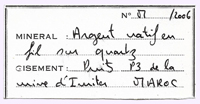 N° VI /2006
MINERAL : Argent natif en
fil sur quartz
GISEMENT : Puits P3 de la
mine d'Imiter MAROC